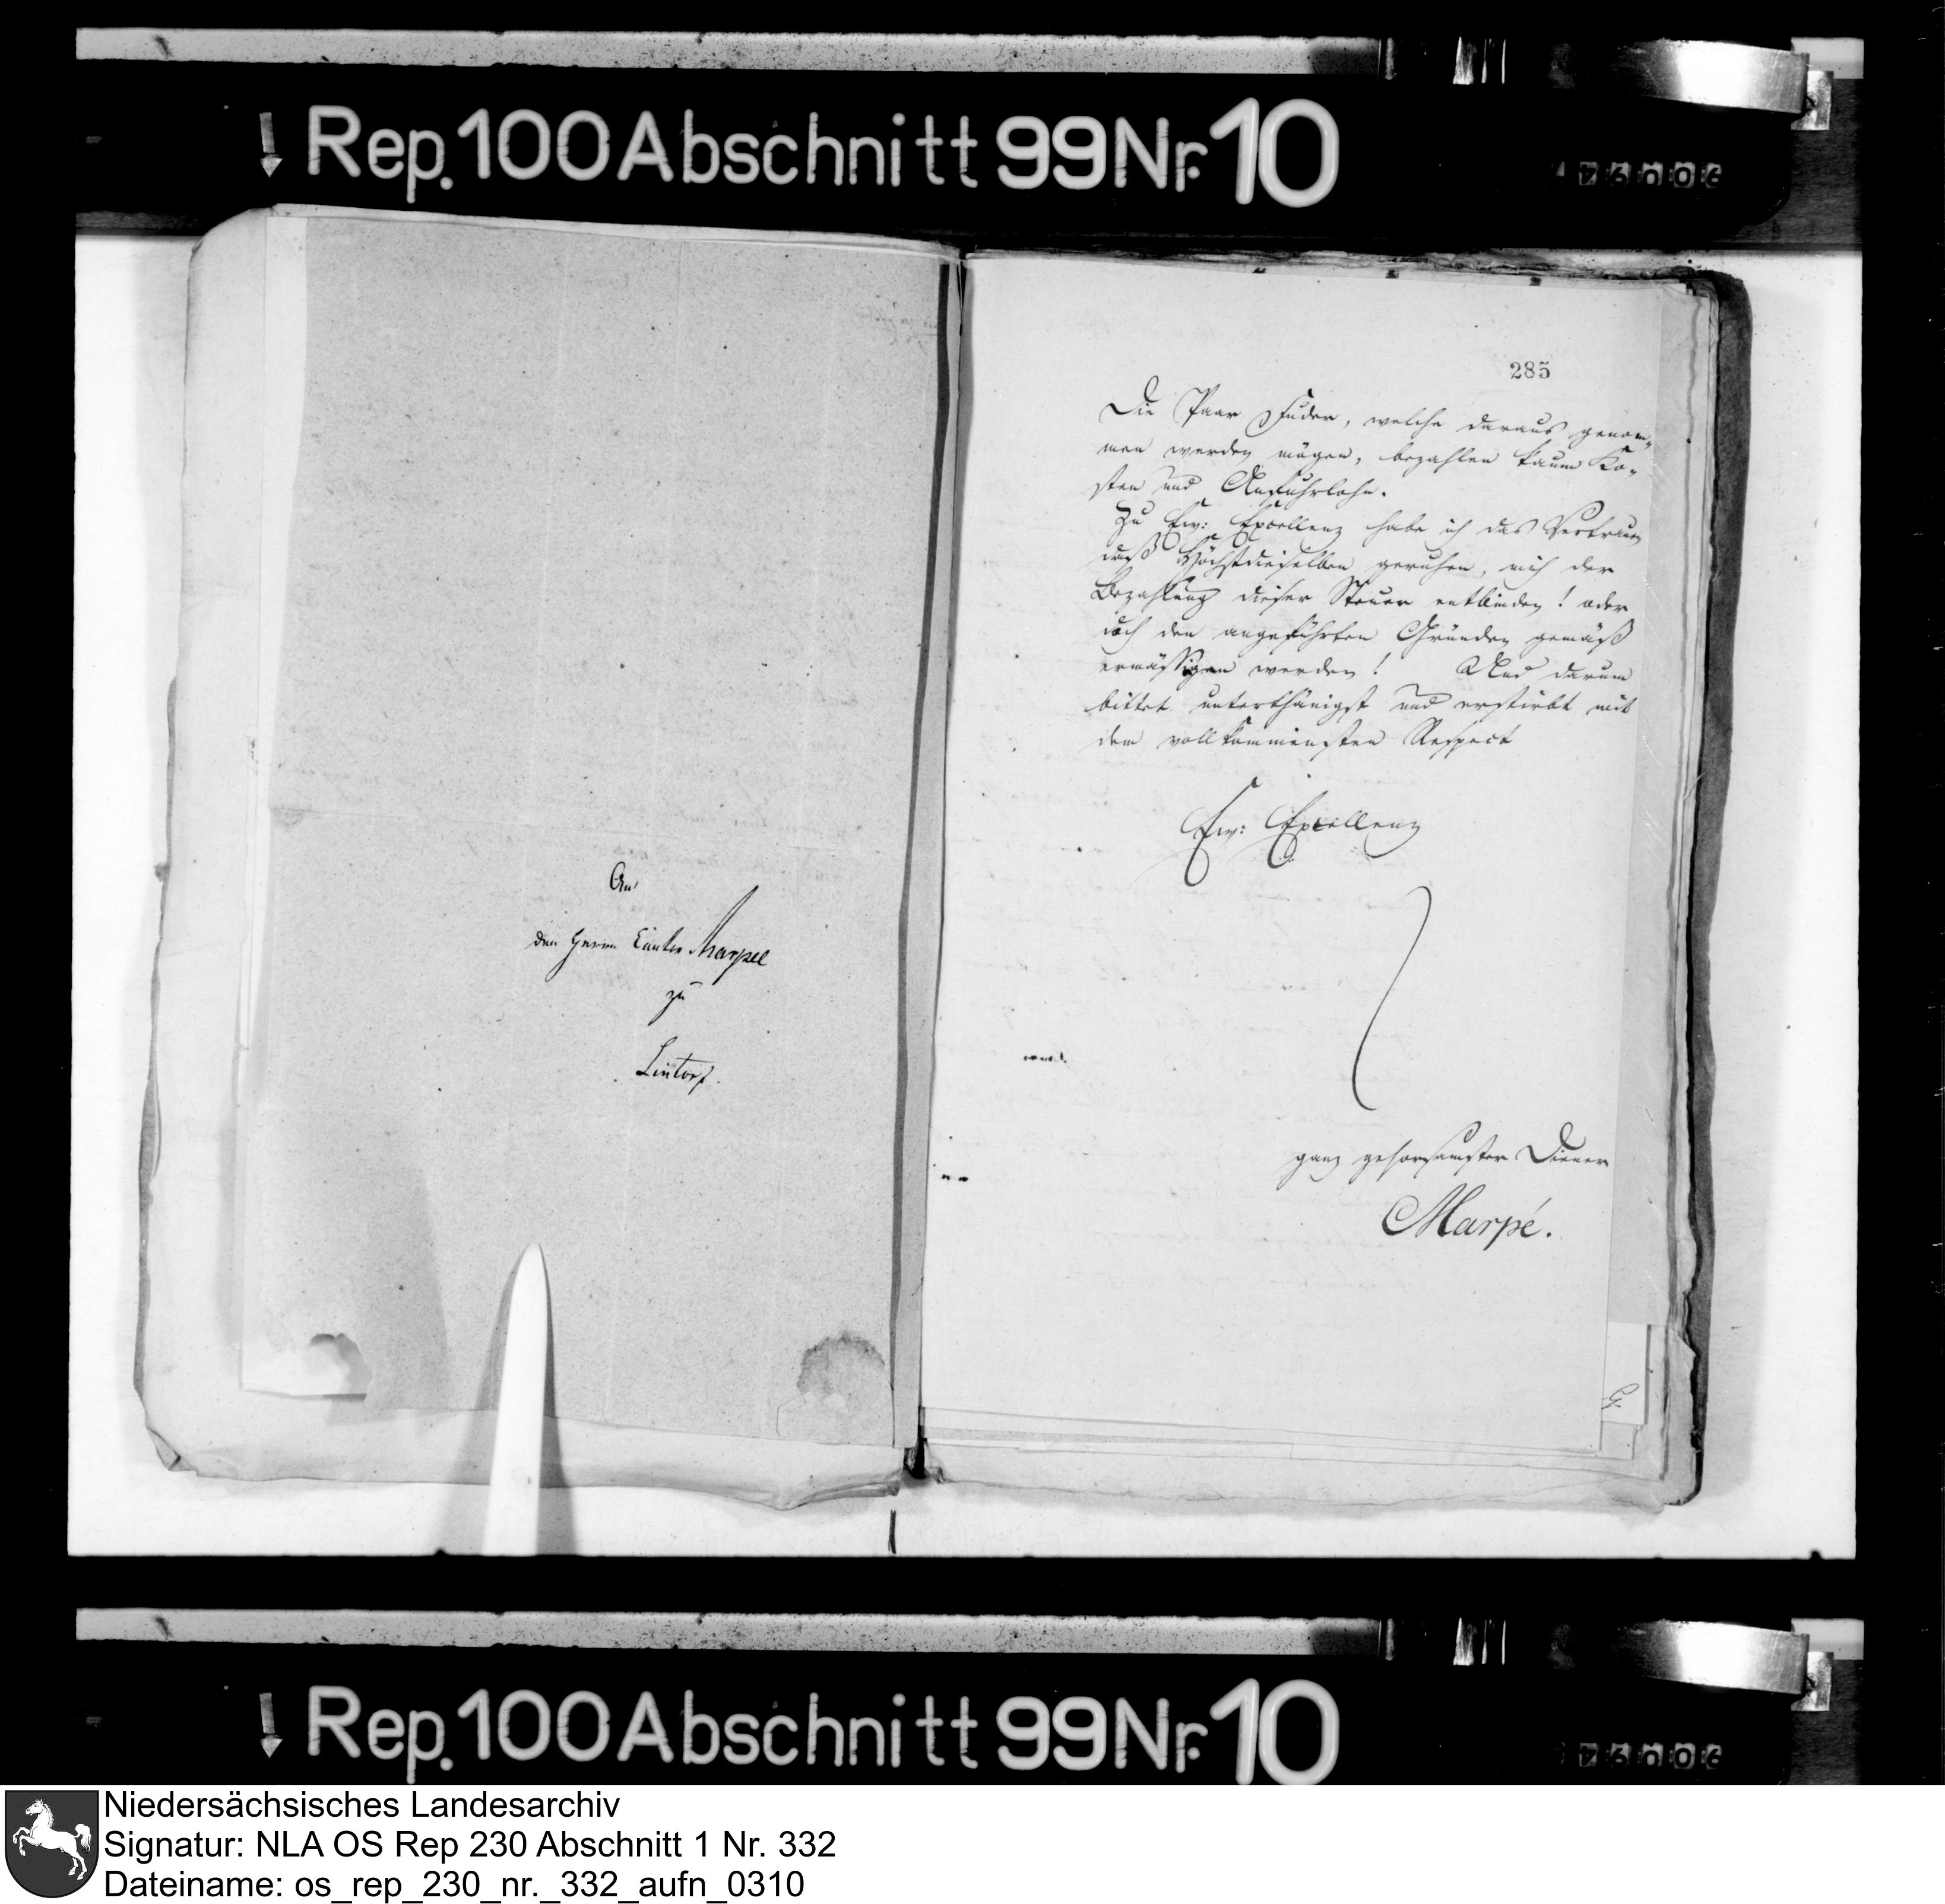 ↓ Rep. 100 Abschnitt 99 Nr. 10
An
den Herrn Marpee
zu
Lintorf.
285
Die Paar Fuder, welche daraus genom-
men werden mögen, bezahlen kaum Ko-
sten und Anfuhrlohn.
Zu Ew: Excellenz habe ich das Vertrauen
daß Höchstdieselben geruhen, mich der
Bezahlung dieser Steuer entbinden! oder
doch den angeführten Gründen gemäß
ermäßigen werden! Und darum
bittet unterthänigst und erstirbt mit
dem vollkommensten Respect
Ew: Excellenz
ganz gehorsamster Diener
Marpé.
↓ Rep. 100 Abschnitt 99 Nr. 10
Niedersächsisches Landesarchiv
Signatur: NLA OS Rep 230 Abschnitt 1 Nr. 332
Dateiname: os_rep_230_nr._332_aufn_0310